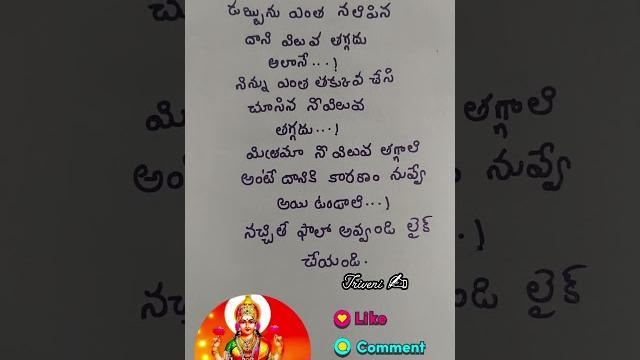 డబ్బును ఎంత నలిపిన
దాని విలువ తగ్గదు
అలానే...!
నిన్ను ఎంత తక్కువ చేసి
చూసిన నీవిలువ
తగ్గదు...!
మిత్రమా నీ విలువ తగ్గాలి
అంటే దానికి కారణం నువ్వే
అయి ఉండాలి...!
నచ్చితే ఫాలో అవ్వండి లైక్
చేయండి.
Triveni ✍️
Like
Comment